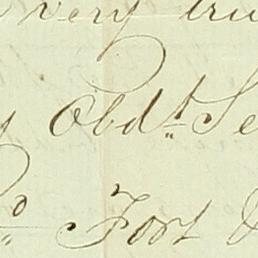 very tru
y Obdt. Se
Fort